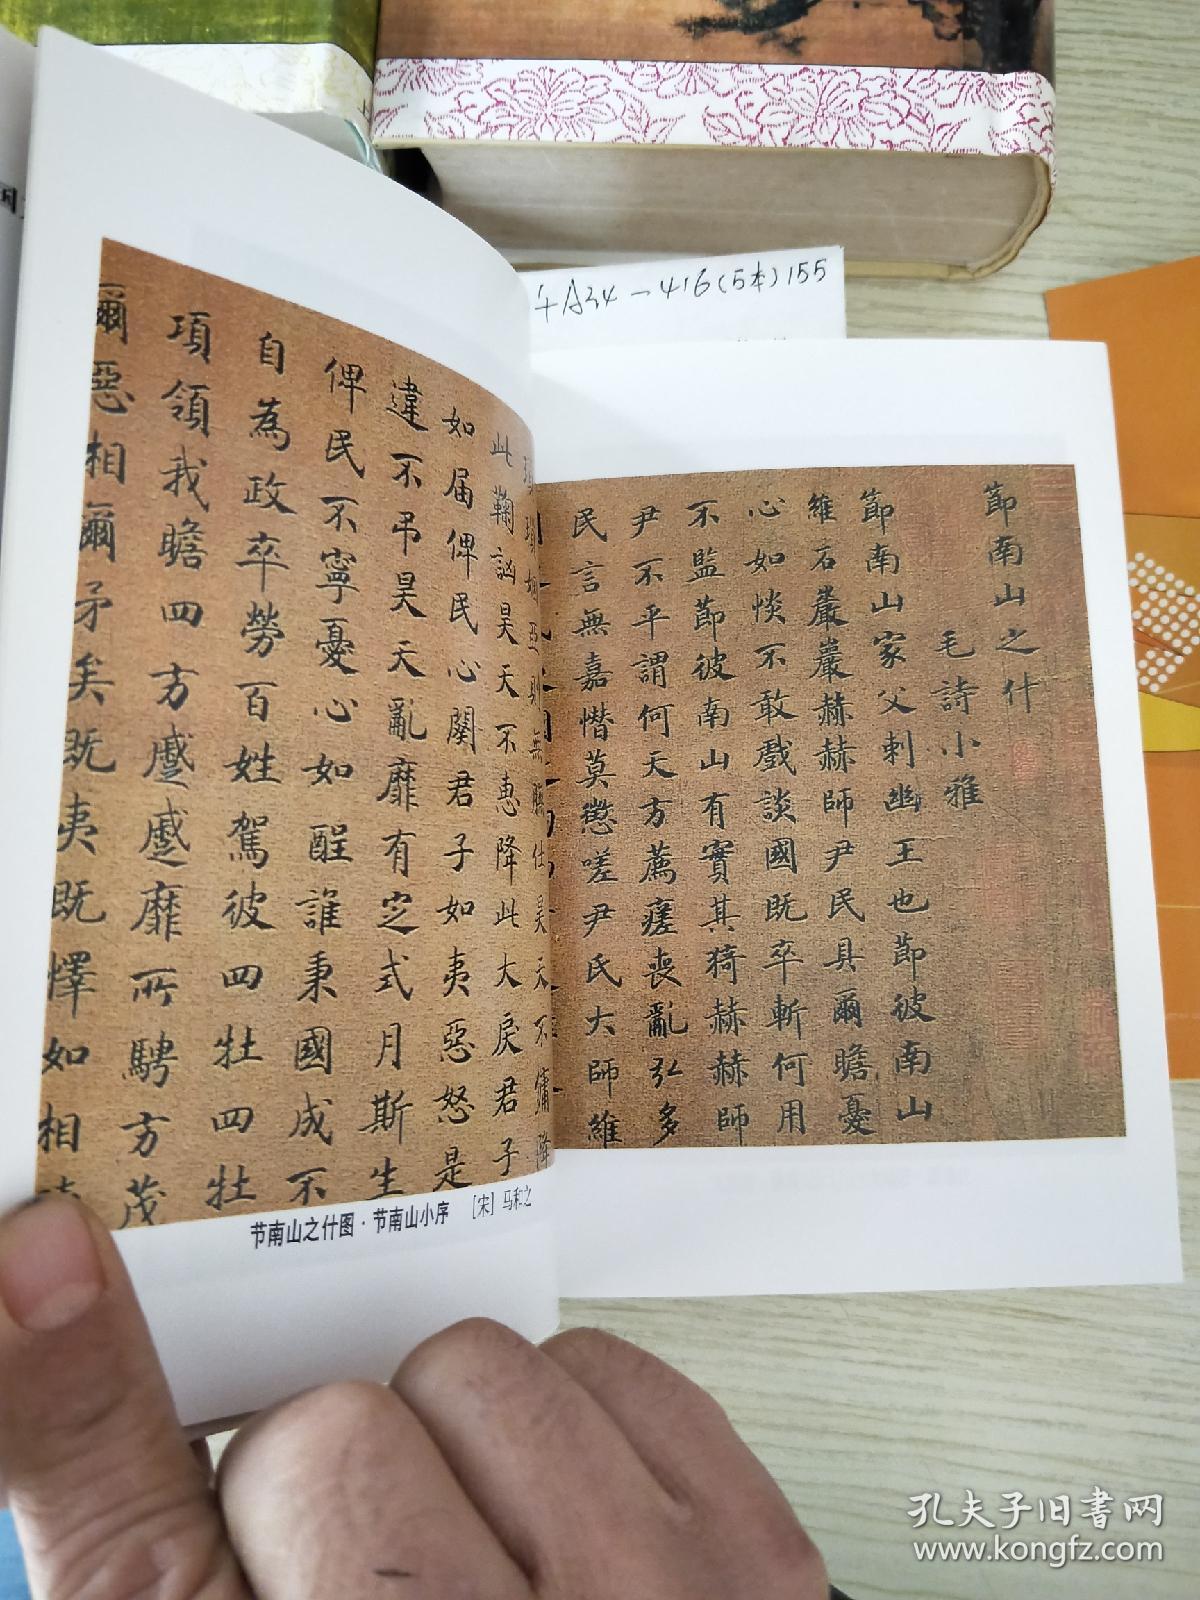 千A34-416(5本)155
節南山之什
毛詩小雅
節南山家父刺幽王也節彼南山
維石巖巖赫赫師尹民具爾瞻憂
心如惔不敢戲談國既卒斬何用
不監節彼南山有實其猗赫赫師
尹不平謂何天方薦瘥喪亂弘多
民言無嘉憯莫懲嗟尹氏大師維
瑣瑣姻亞則無膴仕昊天不傭降
此鞠訩昊天不惠降此大戾君子
如届俾民心闋君子如夷惡怒是
違不弔昊天亂靡有定式月斯生
俾民不寧憂心如酲誰秉國成不
自為政卒勞百姓駕彼四牡四牡
項領我瞻四方蹙蹙靡所騁方茂
爾惡相爾矛矣既夷既懌如相
节南山之什图·节南山小序 [宋] 马和之
孔夫子旧书网
www.kongfz.com